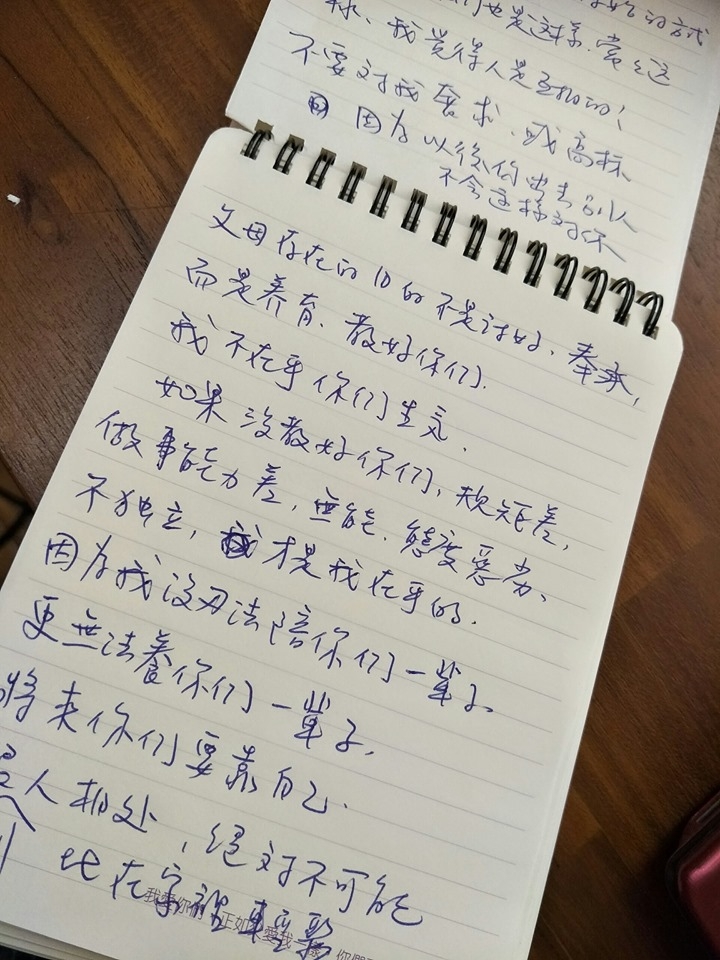 们也是这样.常之这
我觉得人是互相的;
不要对我奢求、或高标、
因为以後你出去别人
不会这样对你
父母存在的目的不是讨好、奉承,
而是养育、教好你们.
我不在乎你们生气.
如果没教好你们,规矩差,
做事能力差,無能.態度惡劣、
不独立,才是我在乎的.
因为我没办法陪你们一輩子、
更無法養你们一輩子,
将来你们要靠自己.
人相处,绝对不可能
比在家裡
我愛你 正如 愛我 你們